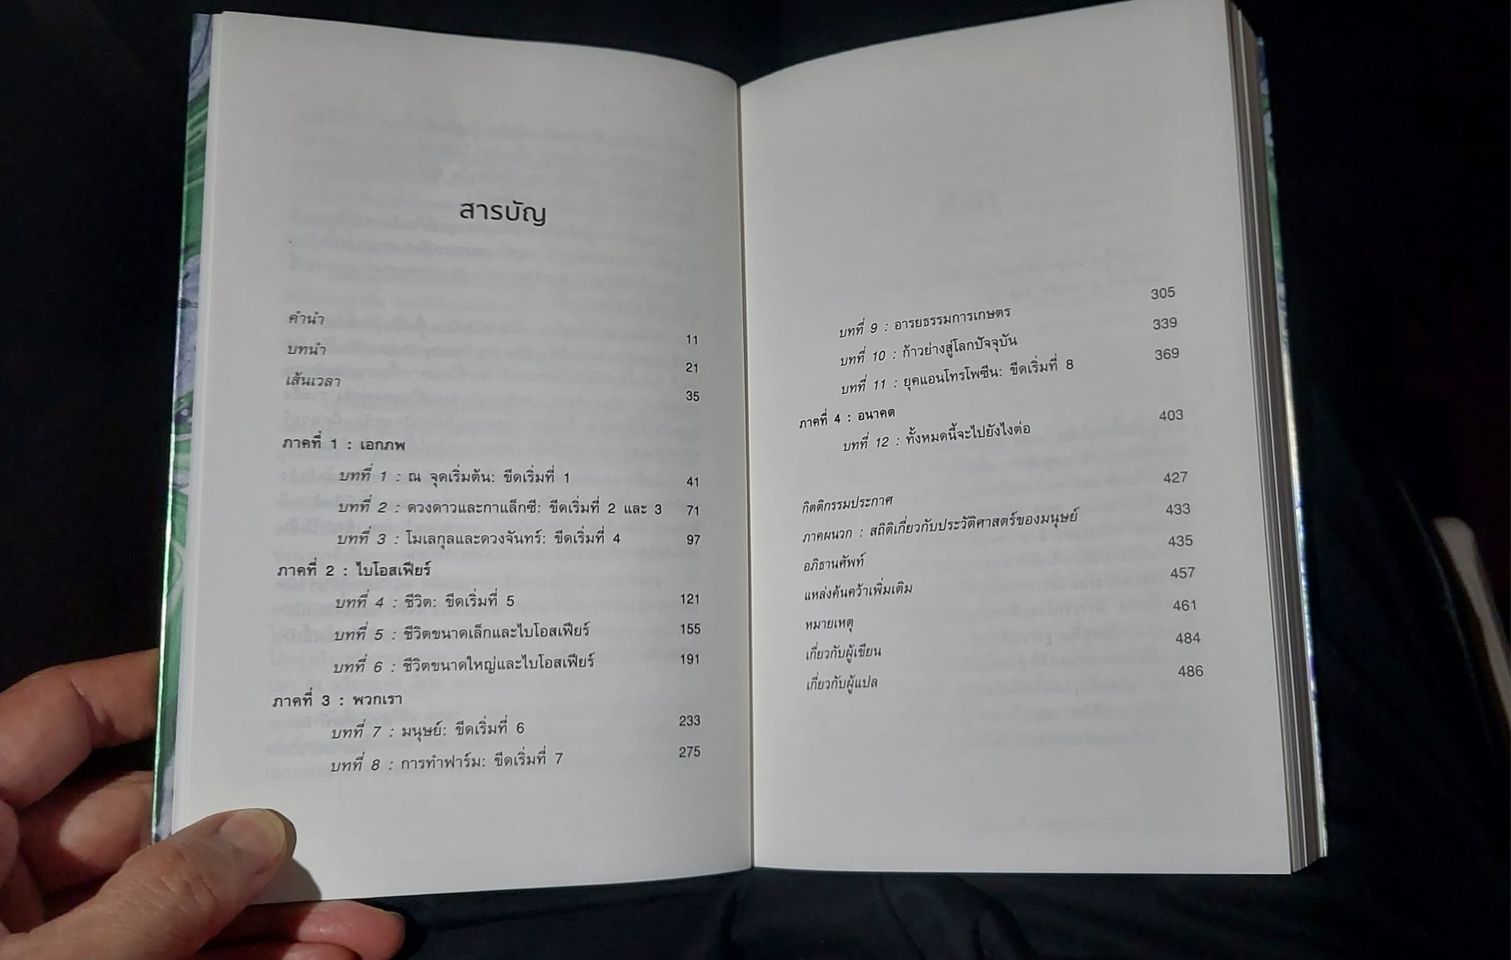 สารบัญ
คำนำ 11
บทนำ 21
เส้นเวลา 35
ภาคที่ 1 : เอกภพ
บทที่ 1 : ณ จุดเริ่มต้น: ขีดเริ่มที่ 1 41
บทที่ 2 : ดวงดาวและกาแล็กซี: ขีดเริ่มที่ 2 และ 3 71
บทที่ 3 : โมเลกุลและดวงจันทร์: ขีดเริ่มที่ 4 97
ภาคที่ 2 : ไบโอสเฟียร์
บทที่ 4 : ชีวิต: ขีดเริ่มที่ 5 121
บทที่ 5 : ชีวิตขนาดเล็กและไบโอสเฟียร์ 155
บทที่ 6 : ชีวิตขนาดใหญ่และไบโอสเฟียร์ 191
ภาคที่ 3 : พวกเรา
บทที่ 7 : มนุษย์: ขีดเริ่มที่ 6 233
บทที่ 8 : การทำฟาร์ม: ขีดเริ่มที่ 7 275
บทที่ 9 : อารยธรรมการเกษตร 305
บทที่ 10 : ก้าวย่างสู่โลกปัจจุบัน 339
บทที่ 11 : ยุคแอนโทรโพซีน: ขีดเริ่มที่ 8 369
ภาคที่ 4 : อนาคต
บทที่ 12 : ทั้งหมดนี้จะไปยังไงต่อ 403
กิตติกรรมประกาศ 427
ภาคผนวก : สถิติเกี่ยวกับประวัติศาสตร์ของมนุษย์ 433
อภิธานศัพท์ 435
แหล่งค้นคว้าเพิ่มเติม 457
หมายเหตุ 461
เกี่ยวกับผู้เขียน 484
เกี่ยวกับผู้แปล 486